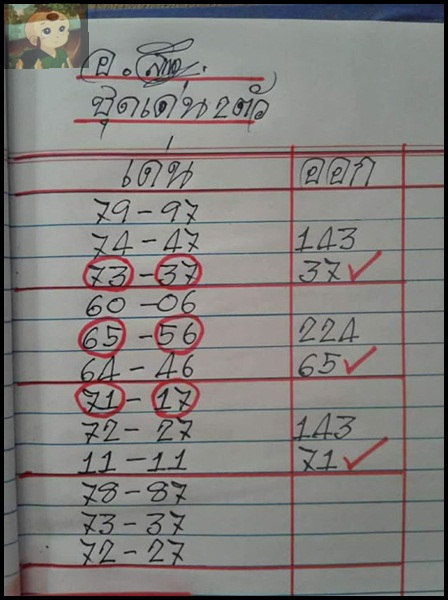 อ.
ชุดเด่น2ตัว
เด่น ออก
79-97
74-47 143
73-37 37✓
60-06
65-56 224
64-46 65✓
71-17
72-27 143
11-11 71✓
78-87
73-37
72-27